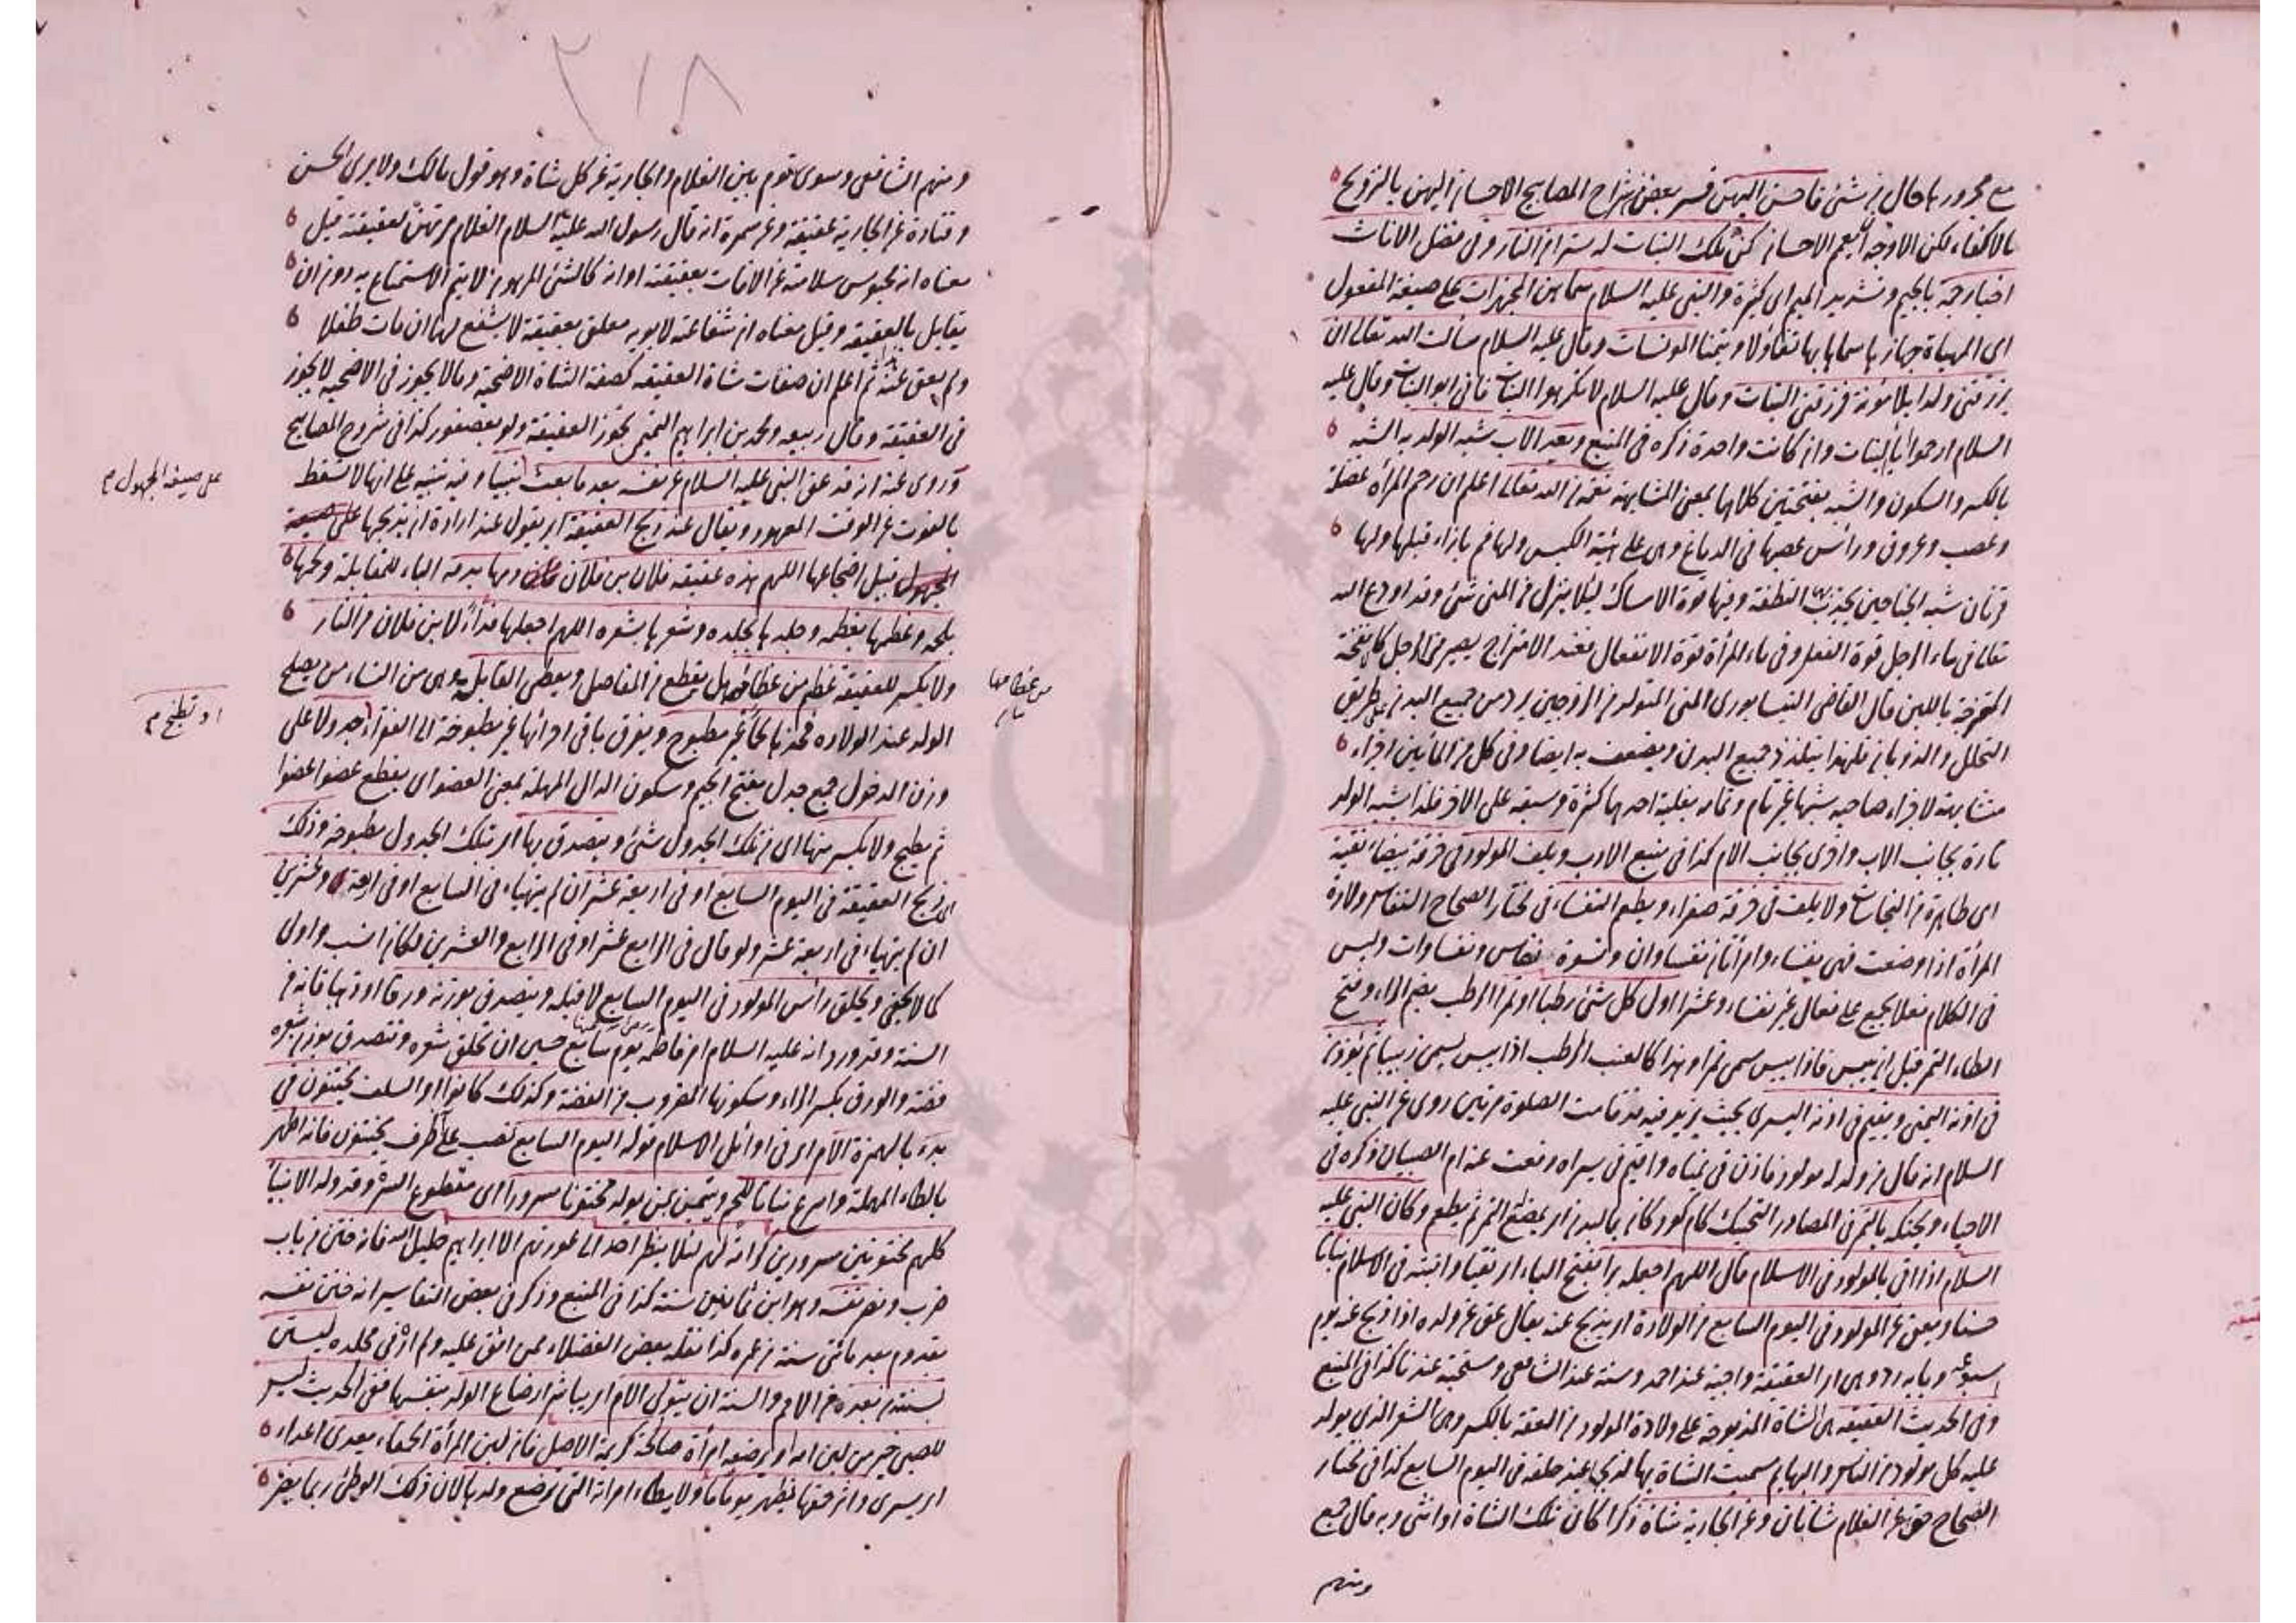 مع مجرورها حال من شئ فاحسن اليهن فسر بعض شراح المصابيح الاحسان اليهن بالتزويج
بالاكفاء لكن الاوجه ان يعم الاحسان كن تلك البنات له سترا من النار وفي فضل الاناث
اخبار جمة بالجيم وتشديد الميم اى كثيرة والنبي عليه السلام سماهن المجهزات على صيغة المفعول
اى المهياة جهازها سماها بها تفاؤلا وتيمنا المونسات وقال عليه السلام سألت الله تعالى ان
يرزقنى ولدا بلا مؤنة فرزقنى البنات وقال عليه السلام لا تكرهوا البنات فانى ابو البنات وقال عليه
السلام ارحموا ابا البنات وان كانت واحدة ذكره في المنبع وبعد الاب شبه الولد به الشبه
بالكسر والسكون والشبه بفتحتين كلاهما بمعنى المشابهة نعمة من الله تعالى اعلم ان رحم المرأة عضلة
وعصب وعروق ورأس عصبها في الدماغ وهى على هيئة الكيس ولها فم بازاء قبلها ولها
قرنان شبه الجناحين يجذب بها النطفة وفيها قوة الامساك لئلا ينزل من المنى شئ وقد اودع الله
تعالى في ماء الرجل قوة الفعل وفي ماء المرأة قوة الانفعال فعند الامتزاج يصير منى الرجل كالانفحة
الممتزجة باللبن قال القاضى النيسابورى المنى المتولد من الزوجين يرد من جميع البدن على طريق
التحلل والذوبان فلهذا يتلذذ جميع البدن ويضعف به ايضا وفي كل من المائين اجزاء
مشابهة لاجزاء صاحبه شبها غير تام وتمامه بغلبة احدهما كثرة وسبقه على الآخر فلذا اشبه الولد
تارة بجانب الاب واخرى بجانب الام كذا في منبع الادب ويلف المولود في خرقة بيضاء نقية
اى طاهرة من النجاسات ولا يلف في خرقة صفراء ويطعم النفساء في مختار الصحاح النفاس ولادة
المرأة اذا وضعت فهى نفساء وامرأتان نفساوان ونسوة نفاس ونفساوات وليس
في الكلام فعلاء يجمع على فعال غير نفساء وعشراء اول كل شئ رطبا او تمرا الرطب بضم الراء وفتح
الطاء التمر قبل ان ييبس فاذا يبس سمى تمرا وهذا كالعنب الرطب اذا يبس يسمى زبيبا ثم يؤذن
في اذنه اليمنى ويقيم في اذنه اليسرى بحيث يزيد فيه قد قامت الصلوة مرتين روى عن النبي عليه
السلام انه قال من ولد له مولود فاذن في يمناه واقيم في يسراه دفعت عنه ام الصبيان ذكره في
الاحياء ويحنكه بالتمر في المصادر التحنيك كام كودك ماليدن اى يمضغ التمر ثم يطعم وكان النبي عليه
السلام اذا اتى بالمولود في الاسلام قال اللهم اجعله برا بفتح الباء اى تقيا وانبته في الاسلام نباتا
حسنا ويعق عن المولود في اليوم السابع من الولادة اى يذبح عنه يقال عق عن ولده اذا ذبح عنه يوم
اسبوعه وبابه رد وهى اى العقيقة واجبة عند احمد وسنة عند الشافعى ومستحبة عندنا كذا في المنبع
وفي الحديث العقيقة هى الشاة المذبوحة على ولادة المولود من العقة بالكسر وهى الشعر الذى يولد
عليه كل مولود من الناس والبهايم سميت الشاة بها لذبحها عند حلقه في اليوم السابع كذا في مختار
الصحاح حق عن الغلام شاتان وعن الجارية شاة ذكرا كان تلك الشاة او انثى وبه قال جمع
ومنهم
٢١٨
ومنهم الشافعى وسوى قوم بين الغلام والجارية عن كل شاة وهو قول مالك ولا يرى الحسن
وقتادة عن الجارية عقيقة وعن سمرة انه قال رسول الله عليه السلام الغلام مرتهن بعقيقته قيل
معناه انه محبوس سلامته عن الافات بعقيقته او انه كالشئ المرهون لا يتم الاستمتاع به دون ان
يقابل بالعقيقة وقيل معناه ان شفاعته لابويه معلق بعقيقة لا يشفع لهما ان مات طفلا
ولم يعق عنه ثم اعلم ان صفات شاة العقيقه كصفة الشاة الاضحية وما لا يجوز في الاضحية لا يجوز
في العقيقة وقال ربيعه ومحمد بن ابراهيم التيمى يجوز العقيقة ولو بعصفور كذا في شروح المصابيح
وروى عنه انه قد عق النبي عليه السلام عن نفسه بعد ما بعث نبيا وفيه تنبيه على انها لا تسقط
على صيغة المجهول م
بالفوت عن الوقت المعهود ويقال عند ذبح العقيقة اى يقول عند ارادة ان يذبحها على صيغة
المجهول قبل اضجاعها اللهم هذه عقيقه فلان بن فلان دمها بدمه الباء للمقابلة ولحمها
بلحمه وعظمها بعظمه وجلدها بجلده وشعرها بشعره اللهم اجعلها فداء لابن فلان من النار
ولا يكسر للعقيقة عظم من عظامها بل يقطع من المفاصل ويعطى القابلة وهى من النساء من يصلح
من عظامها
الولد عند الولاده فخذها لحما غير مطبوخ ويفرق باقى اجزائها غير مطبوخة الى الفقراء جدولا على
او تطبخ م
وزن الدخول جمع جدل بفتح الجيم وسكون الدال المهملة بمعنى العضو اى يقطع عضوا عضوا
ثم يطبخ ولا يكسر منها اى من تلك الجدول شئ ويتصدق بها اى بتلك الجدول مطبوخة وذلك
اى ذبح العقيقة في اليوم السابع او في اربعة عشر ان لم يتهياء في السابع او في اربعة وعشرين
ان لم يتهياء في اربعة عشر ولو قال في الرابع عشر او في الرابع والعشرين لكان انسب واولى
كما لا يخفى ويحلق رأس المولود في اليوم السابع لا قبله ويتصدق بوزنه ورقا او ذهبا فانه من
السنة وقد ورد انه عليه السلام امر فاطمه يوم سابع حسين ان تحلق شعره وتتصدق بوزن شعره
فضة والورق بكسر الراء وسكونها المضروب من الفضة وكذلك كانوا اى السلف يختنون في
بدء بالهمزة الامر اى في اوائل الاسلام قوله اليوم السابع نصب على انه ظرف يختنون فانه اطهر
بالطاء المهملة واسرع نباتا للحم ويتيمن بمن يولد مختونا مسرورا اى مقطوع السرة وقد ولد الانبياء
كلهم مختونين مسرورين كرامة لهم لئلا ينظر احد الى عورتهم الا ابراهيم خليل الله فانه ختن من باب
ضرب ونصر نفسه وهو ابن ثمانين سنة كذا في المنبع وذكر في بعض التفاسير انه ختن نفسه
بقدوم بعد مائتى سنة من عمره كذا نقله بعض الفضلاء ممن اثق عليه ولم اره في محله ليستن
بسنته من بعده من الامم والسنة ان يتولى الام اى يباشر ارضاع الولد بنفسها ففى الحديث ليس
للصبى خير من لبن امه او ترضعه امرأة صالحة كريمة الاصل فان لبن المرأة الحمقاء يعدى اعداء
اى يسرى واثر حمقها يظهر يوما ما ولا يطاء امراته التى ترضع ولدها لان ذلك الوطئ ربما يضر